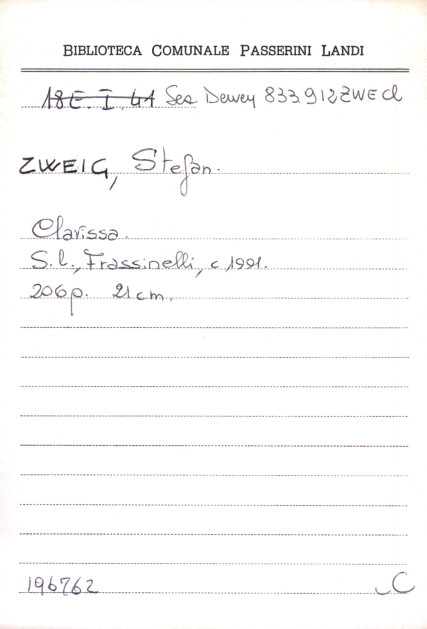 BIBLIOTECA COMUNALE PASSERINI LANDI
18E. I. 41 Sez Dewey 833.912 ZWE cl
ZWEIG, Stefan.
Clarissa.
S.l., Frassinelli, c 1991.
206 p. 21 cm.
196762 C